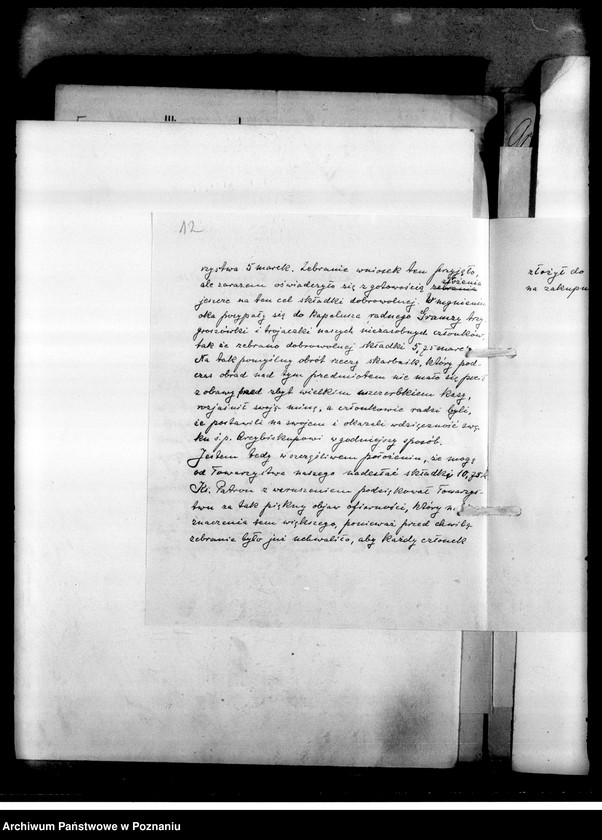 12
rzystwa 5 marek. Zebranie wniosek ten przyjęło,
złożenia
ale zarazem oświadczyło się z gotowością zebrania
jeszcze na ten cel składki dobrowolnej. W mgnieniu
oka przypały się do kapelusza radnego Gramzy trzy
groszówki i trojaczki naszych niezasobnych członków,
tak że zebrano dobrowolnej składki 5,75 marek.
Na tak pomyślny obrót rzeczy skarbnik, który pod-
czas obrad nad tym przedmiotem nie mało się pocił
z obawy przed zbyt wielkim uszczerbkiem kasy,
rozjaśnił swoją minę, a członkowie radzi byli,
że postawili na swojem i okazali wdzięczność swą
ku ś.p. Arcybiskupowi w godniejszy sposób.
Jestem tedy w szczęśliwem położeniu, że mogę
od Towarzystwa naszego nadesłać składkę 10,75
Ks. Patron z wzruszeniem podziękował Towarzy-
stwu za tak piękny objaw ofiarności, który
znaczenia tem większego, ponieważ przed chwilą
zebranie było już uchwaliło, aby każdy członek
złożył do
na zakupn
Archiwum Państwowe w Poznaniu